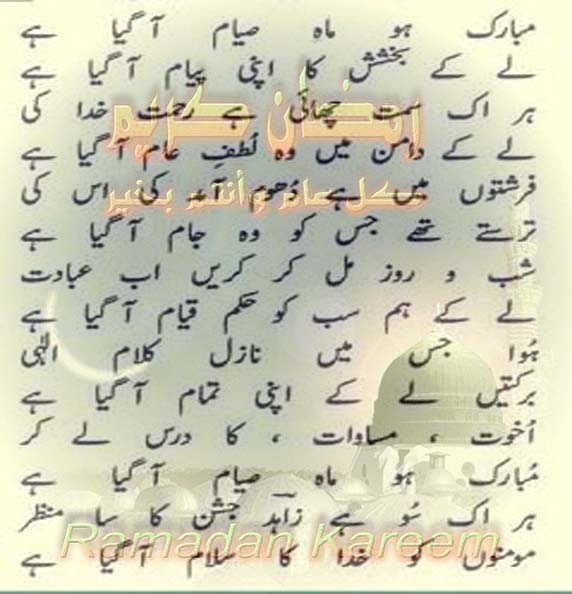 مبارک ہو ماہ صیام آ گیا ہے
لے کے بخشش کا اپنی پیام آ گیا ہے
ہر اک سمت چھائی ہے رحمت خدا کی
لے کے دامن میں وہ لُطفِ عام آ گیا ہے
فرشتوں میں ہے دُھوم آمد کی اس کی
ترستے تھے جس کو وہ جام آ گیا ہے
شب و روز مل کر کریں اب عبادت
لے کے ہم سب کو حکم قیام آ گیا ہے
ہُوا جس میں نازل کلام الٰہی
برکتیں لے کے اپنی تمام آ گیا ہے
اُخوت ، مساوات ، کا درس لے کر
مُبارک ہو ماہ صیام آ گیا ہے
ہر اک سُو ہے زاہدؔ جشن کا سا منظر
مومنوں کو خدا کا سلام آ گیا ہے
رمضان كريم
كل عام وأنتم بخير
Ramadan Kareem